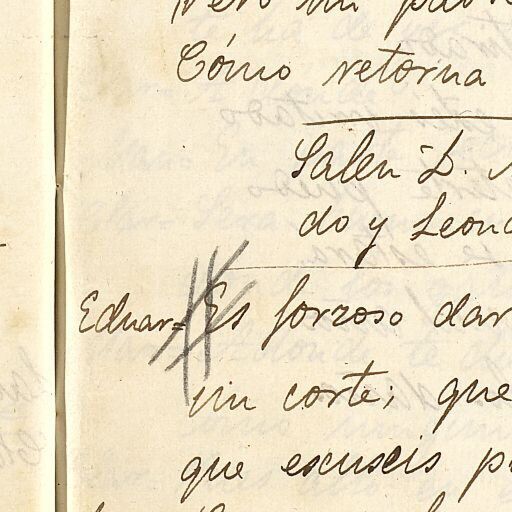 Pero mi
Cómo retorna
Salen D.
do y Leon
Eduar= Es forzoso dar
un corte; que
que escuseis